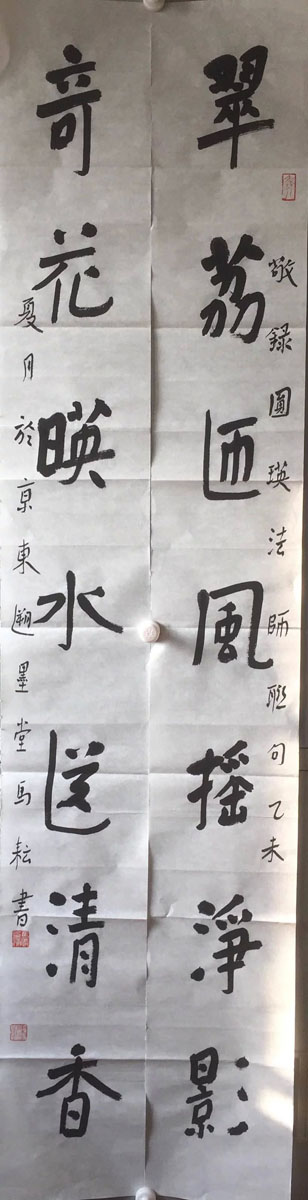 翠荔迎風摇淨影
敬録圓瑛法師聯句乙未
奇花暎水送清香
夏月於京東墨堂馬耘書